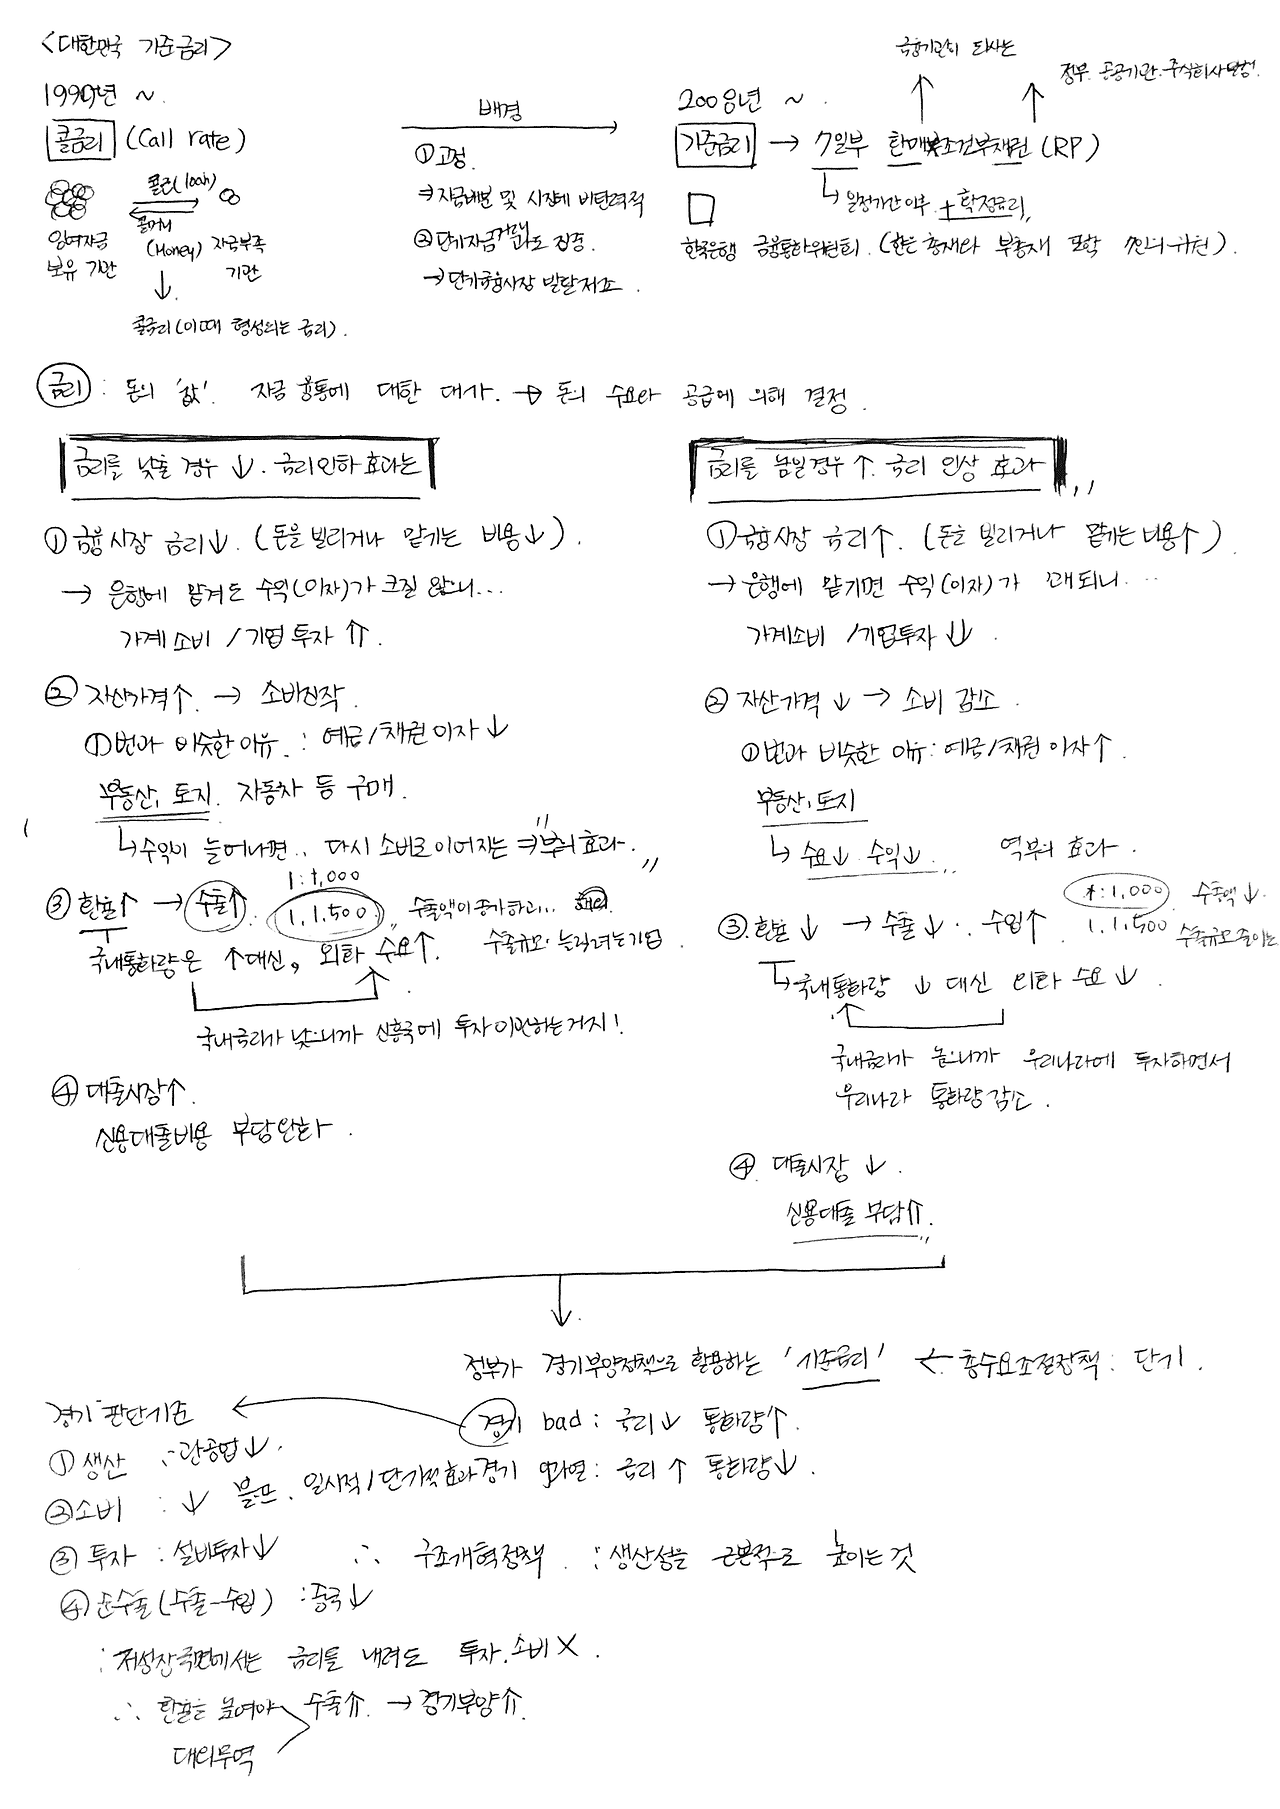 <대한민국 기준금리>
1990년 ~
콜금리 (Call rate)
콜론(loan)
콜머니
(Money)
잉여자금
보유 기관
자금부족
기관
콜금리(이때 형성되는 금리).
배경
① 고정.
⇒ 자금배분 및 시장에 비탄력적
② 단기자금거래 과도 집중.
→ 단기금융시장 발달저조.
금융기관이 되사는
정부. 공공기관. 주식회사
2008년 ~
기준금리 → 7일부 환매조건부채권 (RP)
일정기간이후 + 확정금리,,
한국은행 금융통화위원회. (한은 총재와 부총재 포함 7인의 위원).
금리 : 돈의 '값'. 자금 융통에 대한 대가. → 돈의 수요와 공급에 의해 결정.
금리를 낮출 경우 ↓. 금리인하 효과는
① 금융시장 금리↓. (돈을 빌리거나 맡기는 비용↓).
→ 은행에 맡겨도 수익(이자)가 크질 않으니...
가계소비 / 기업투자 ⇑.
② 자산가격↑. → 소비진작
①번과 비슷한 이유. : 예금/채권이자↓
부동산, 토지. 자동차 등 구매.
↳수익이 늘어나면.. 다시 소비로 이어지는 ⇒ "부의 효과."
③ 환율↑ → 수출↑.
1:1,000
1,1,500
수출액이 증가하고...
수출규모 늘리려는 기업.
국내통화량은 ↑대신, 외화 수요↑.
국내금리가 낮으니까 신흥국에 투자이민하는거지!
④ 대출시장↑.
신용대출비용 부담완화.
금리를 높일경우 ↑. 금리 인상 효과
① 금융시장 금리↑. (돈을 빌리거나 맡기는 비용↑).
→ 은행에 맡기면 수익(이자)가 꽤되니...
가계소비 / 기업투자 ⇓.
② 자산가격 ↓ → 소비 감소.
①번과 비슷한 이유: 예금/채권 이자↑.
부동산, 토지
↳ 수요↓ 수익↓.,, 역부의 효과.
1:1,000 수출액↓.
③. 환율 ↓ → 수출↓. 수입↑ 1,1,500 수출규모줄이는
↳국내통화량 ↓ 대신 외화 수요↓.
국내금리가 높으니까 우리나라에 투자하면서
우리나라 통화량감소.
④. 대출시장 ↓.
신용대출 부담⇑.,,
정부가 경기부양정책으로 활용하는 '기준금리' ← 총수요조절정책 : 단기.
경기 bad : 금리↓ 통화량↑.
경기 과열 : 금리 ↑ 통화량↓.
경기 판단기준
① 생산 : 광공업↓.
② 소비 : ↓ 일시적/단기적효과
③ 투자 : 설비투자↓ ∴ 구조개혁정책. : 생산성을 근본적으로 높이는 것
④ 순수출(수출-수입) : 중국↓
: 저성장국면에서는 금리를 내려도 투자.소비 X.
∴ 환율을 높여야 수출⇑. → 경기부양⇑.
대외무역